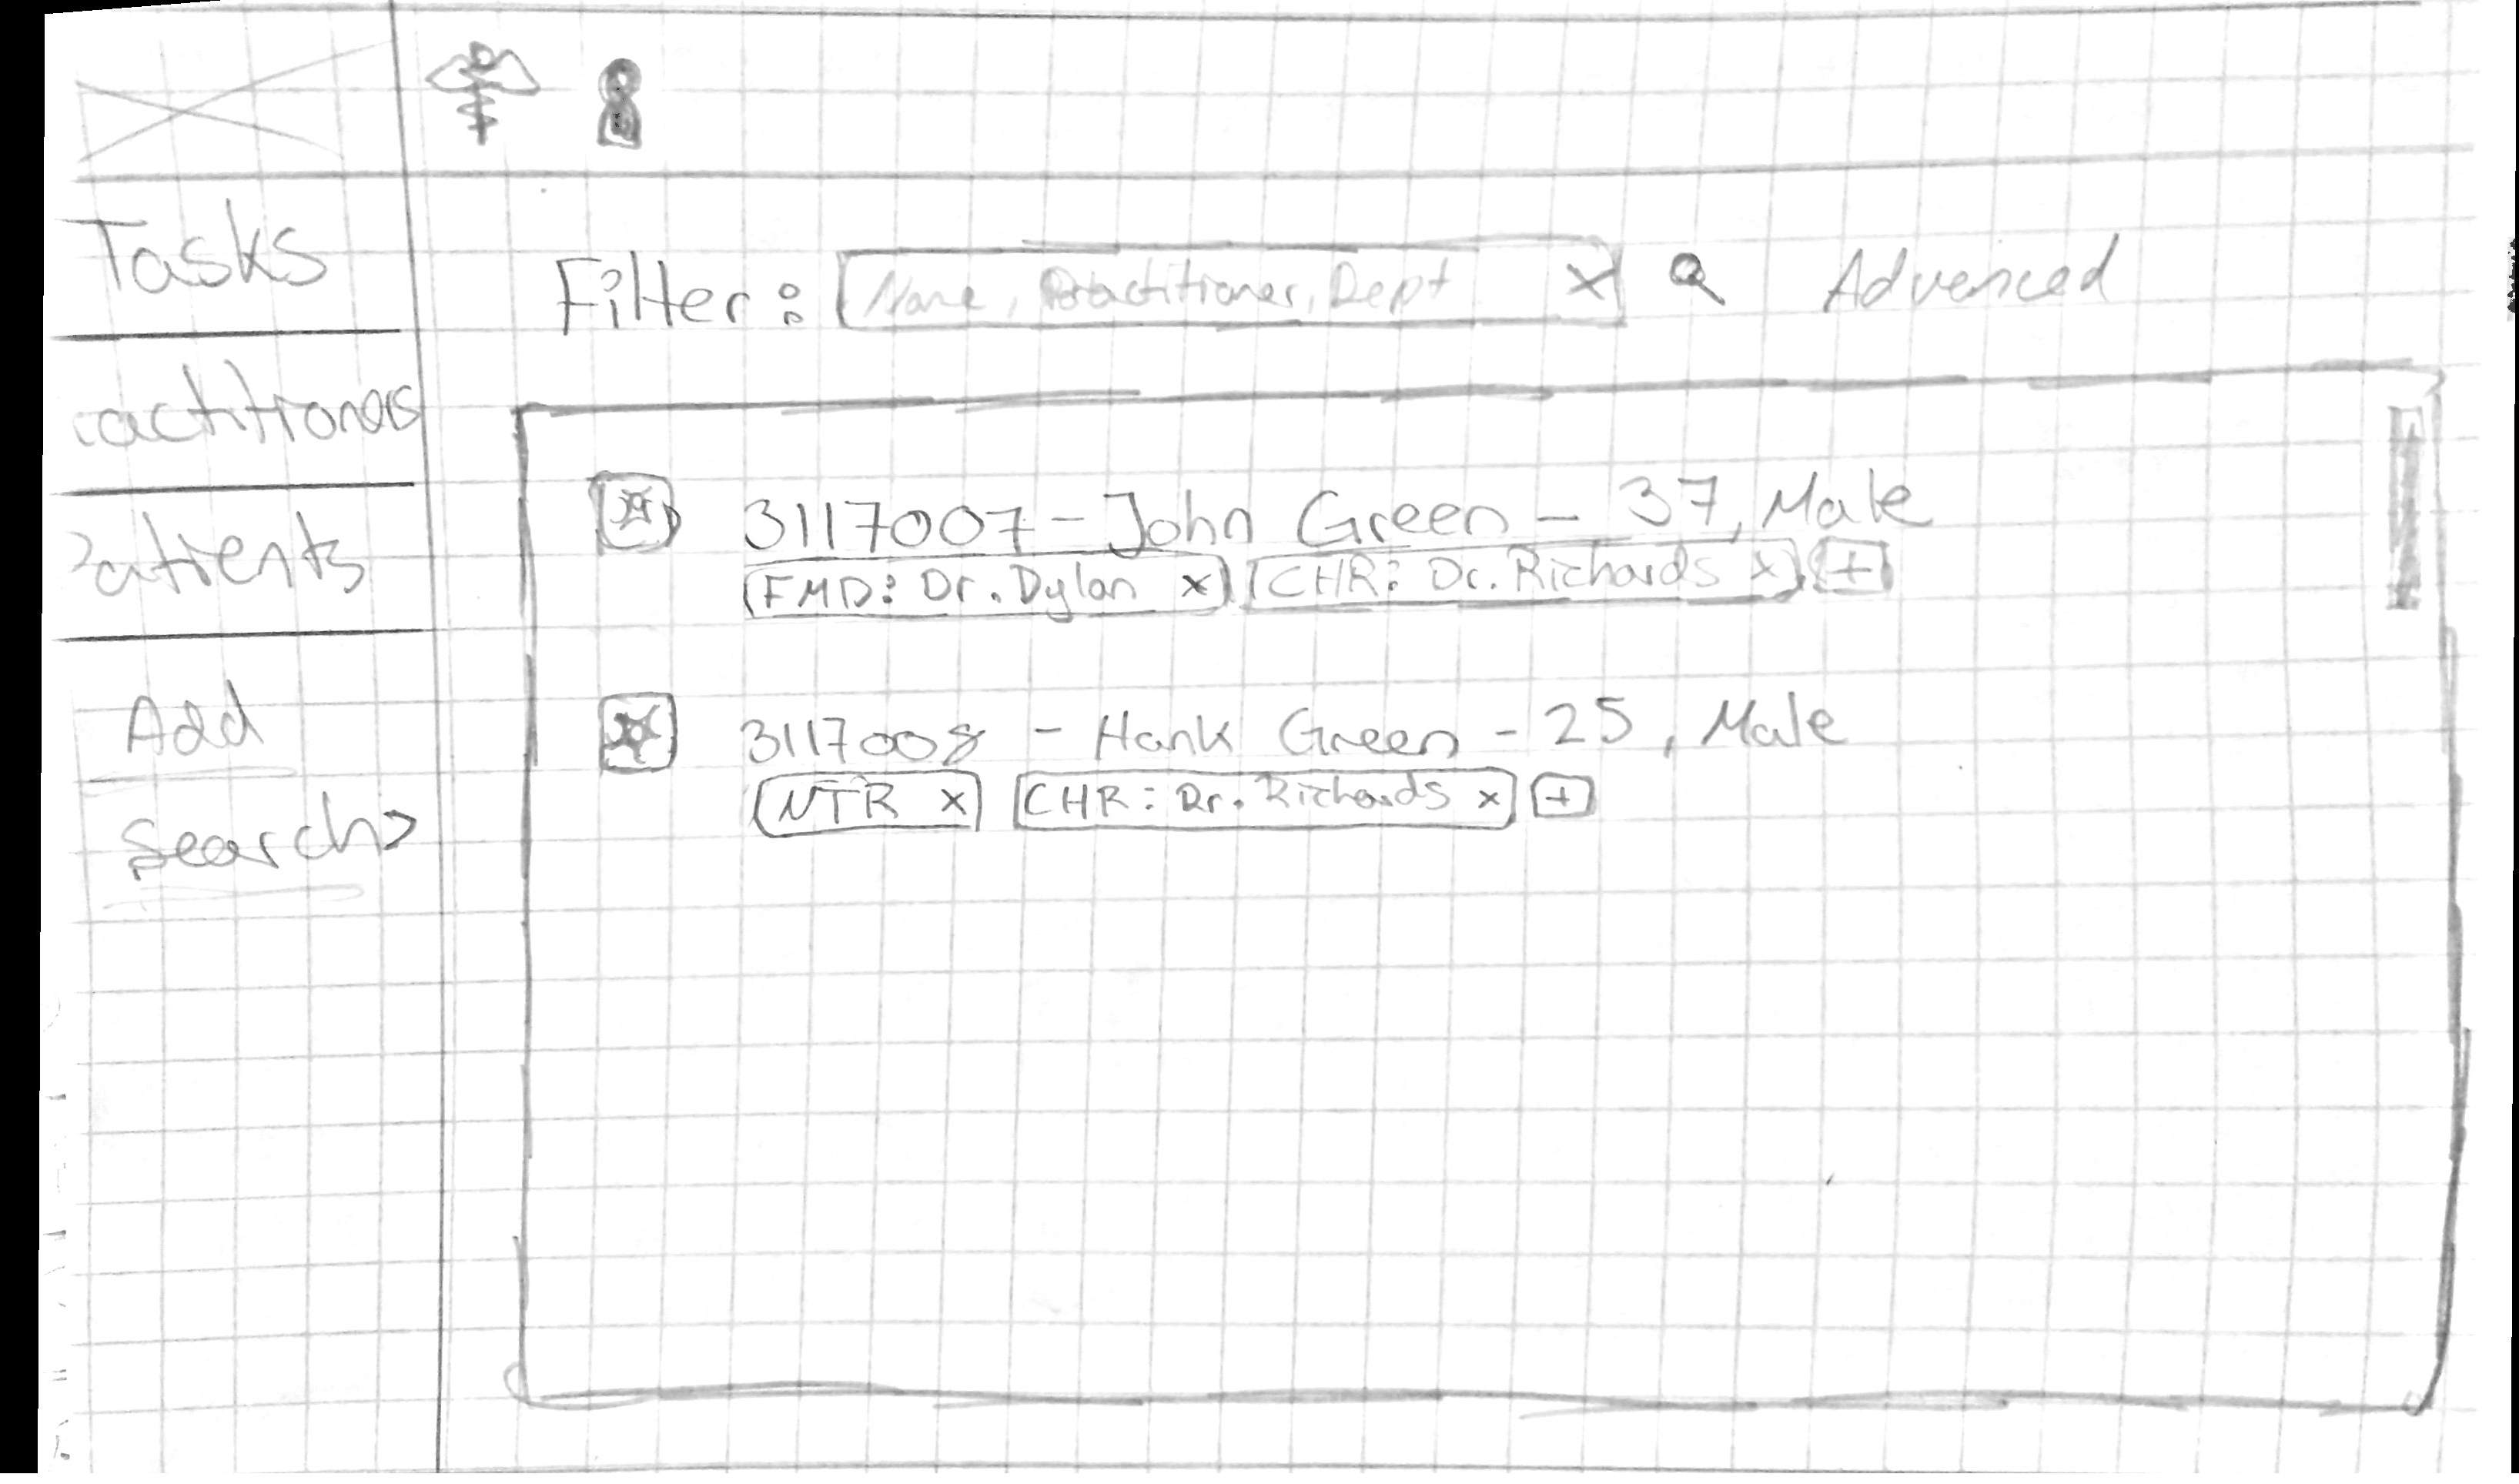 Tasks
ractitioners
Patients
Add
Search >
Filter: Name, Practitioner, Dept X Advanced
3117007 - John Green - 37, Male
FMD: Dr. Dylan x CHR: Dr. Richards x +
3117008 - Hank Green - 25, Male
NTR x CHR: Dr. Richards x +